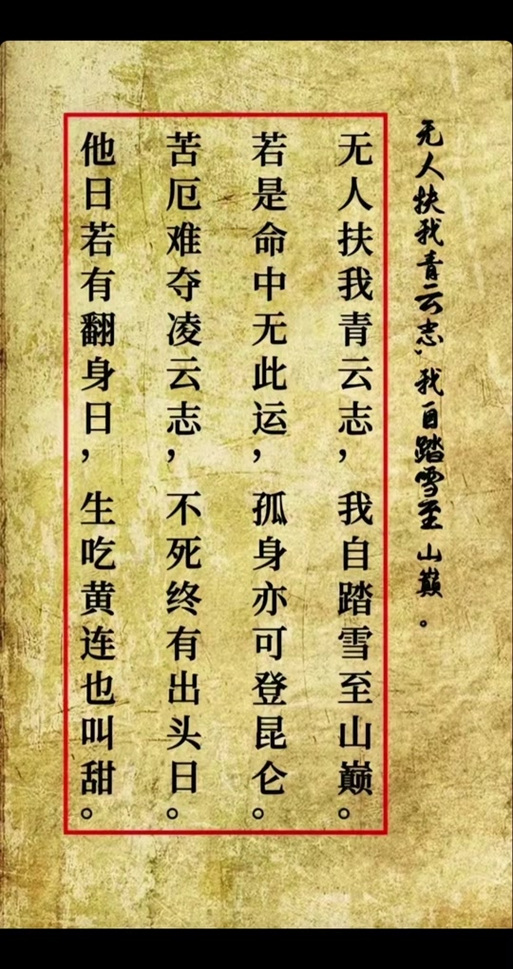 无人扶我青云志，我自踏雪至山巅。
无人扶我青云志，我自踏雪至山巅。
若是命中无此运，孤身亦可登昆仑。
苦厄难夺凌云志，不死终有出头日。
他日若有翻身日，生吃黄连也叫甜。